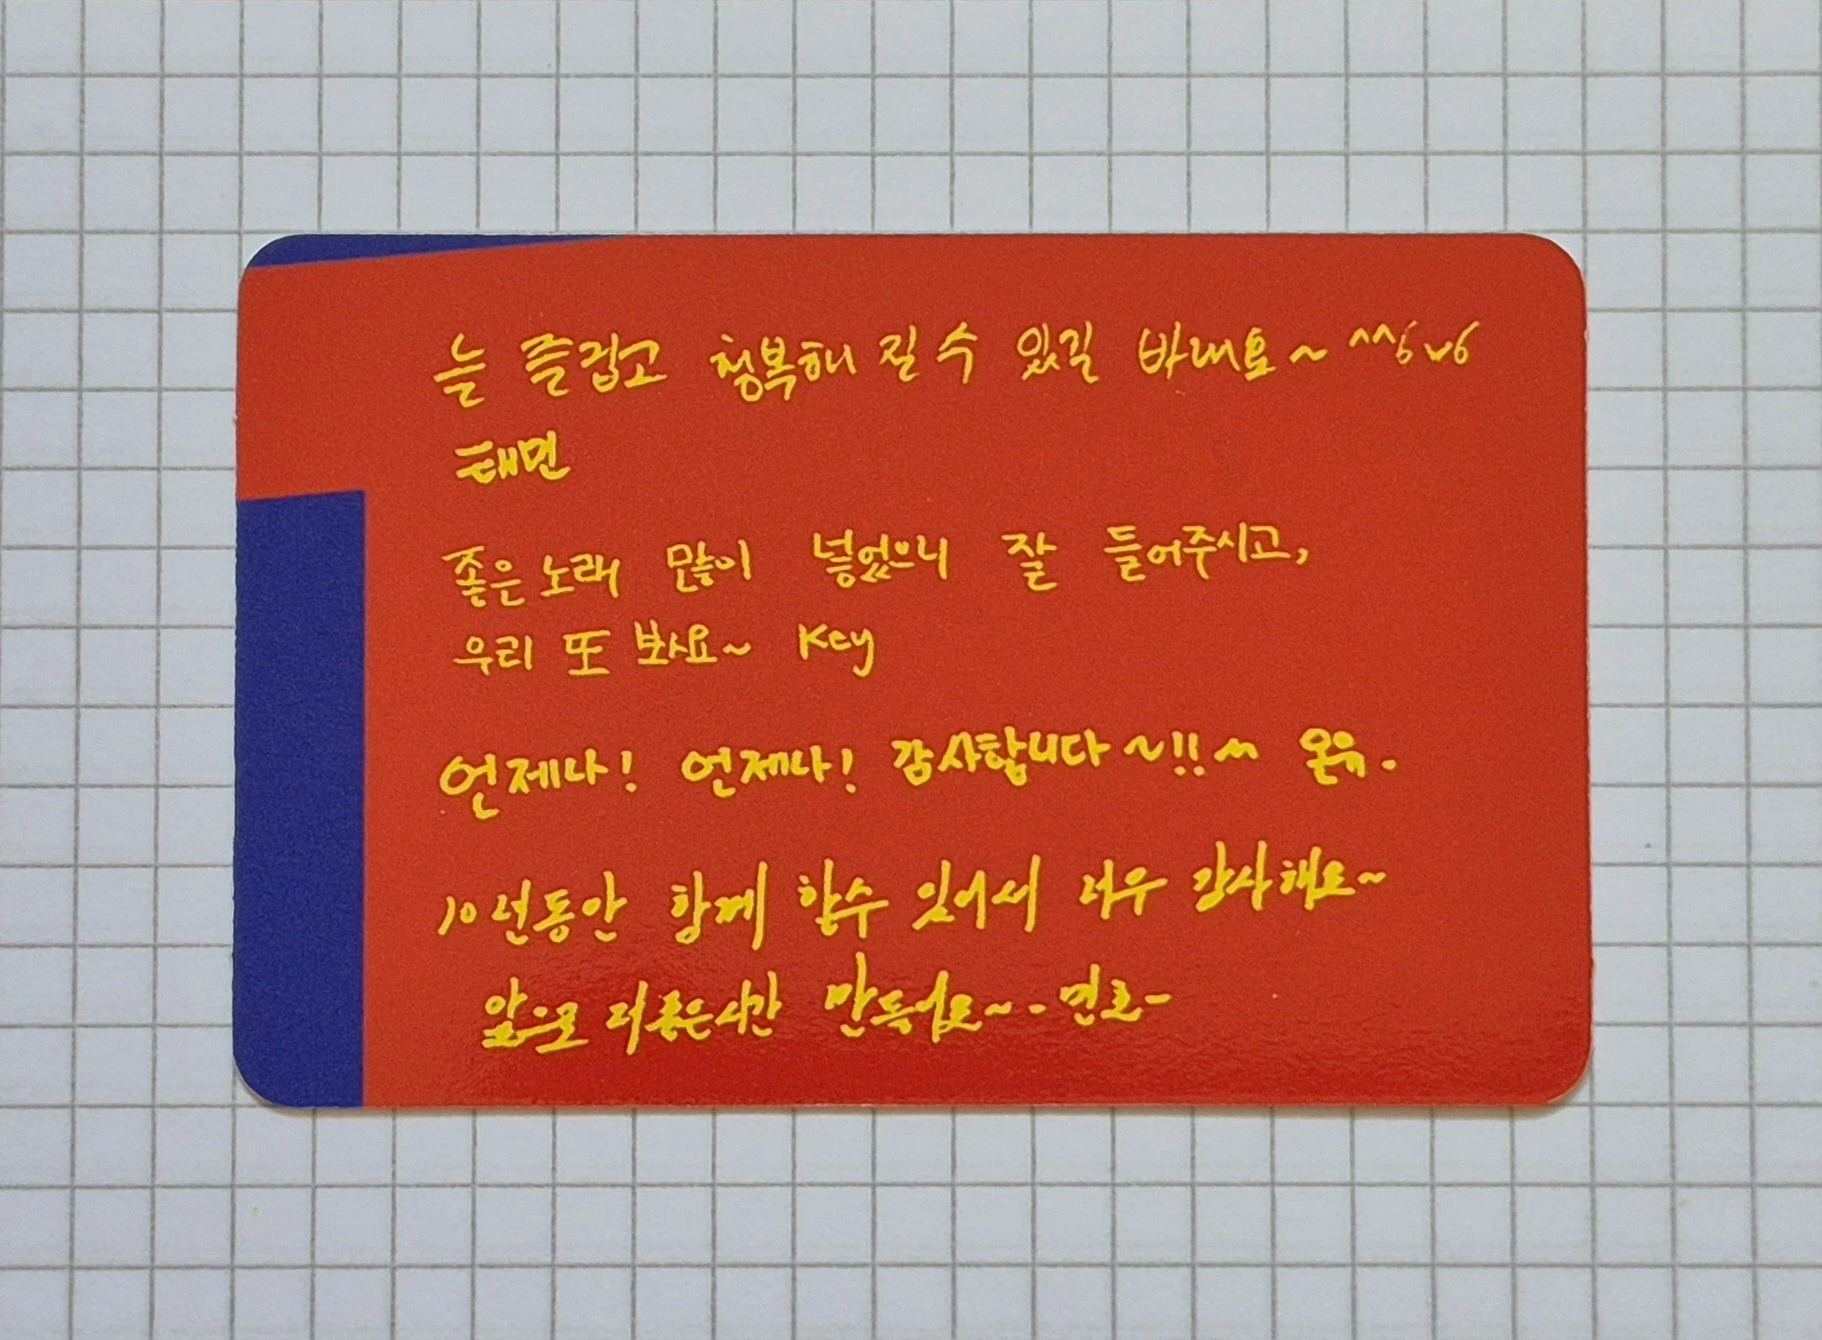 늘 즐겁고 행복해 질 수 있길 바래요~ ^^
태민
좋은 노래 많이 넣었으니 잘 들어주시고,
우리 또 봐요~ Key
언제나! 언제나! 감사합니다~!! ^^ 온유.
10년동안 함께 할수 있어서 너무 감사해요~
앞으로 더 좋은시간 만들어요~ - 민호-